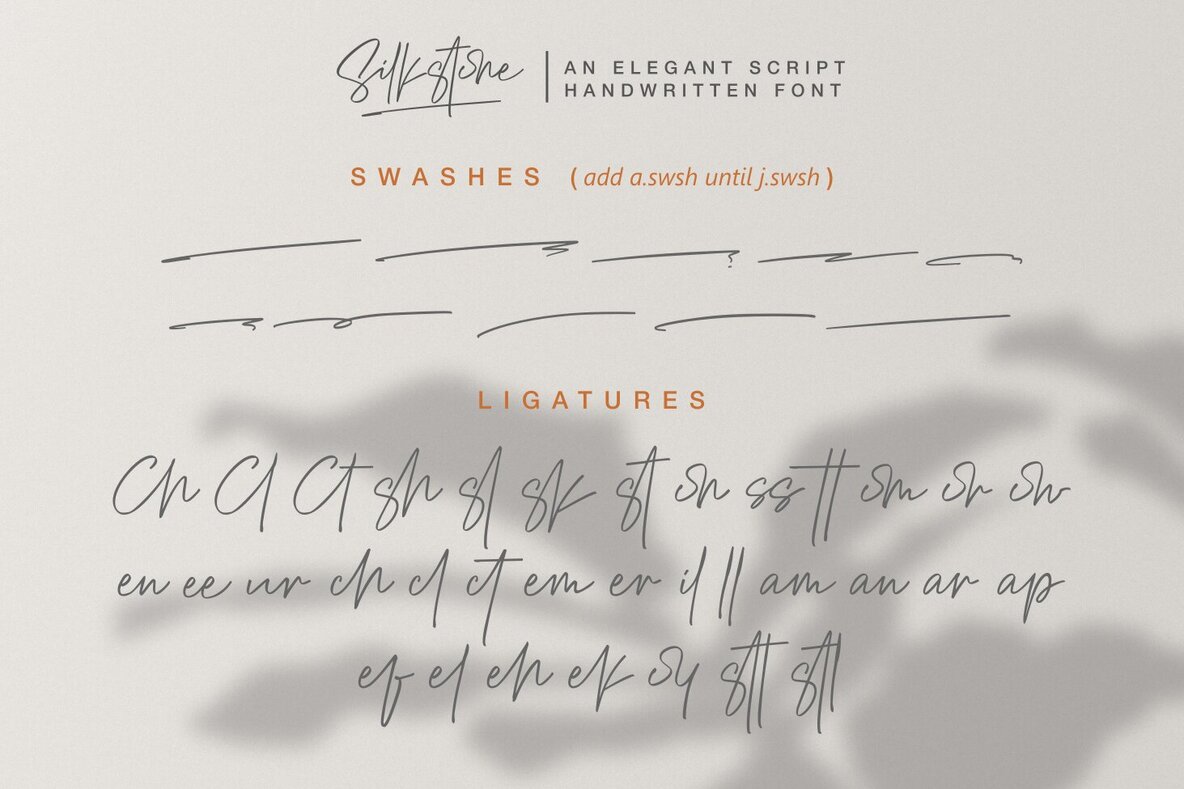 Silkstone
AN ELEGANT SCRIPT
HANDWRITTEN FONT
SWASHES (add a.swsh until j.swsh)
LIGATURES
Ch Cl Ct sh sl sk st on ss tt om or ow
en ee ur ch cl ct em er il ll am an ar ap
ef el eh ek oy stt stl